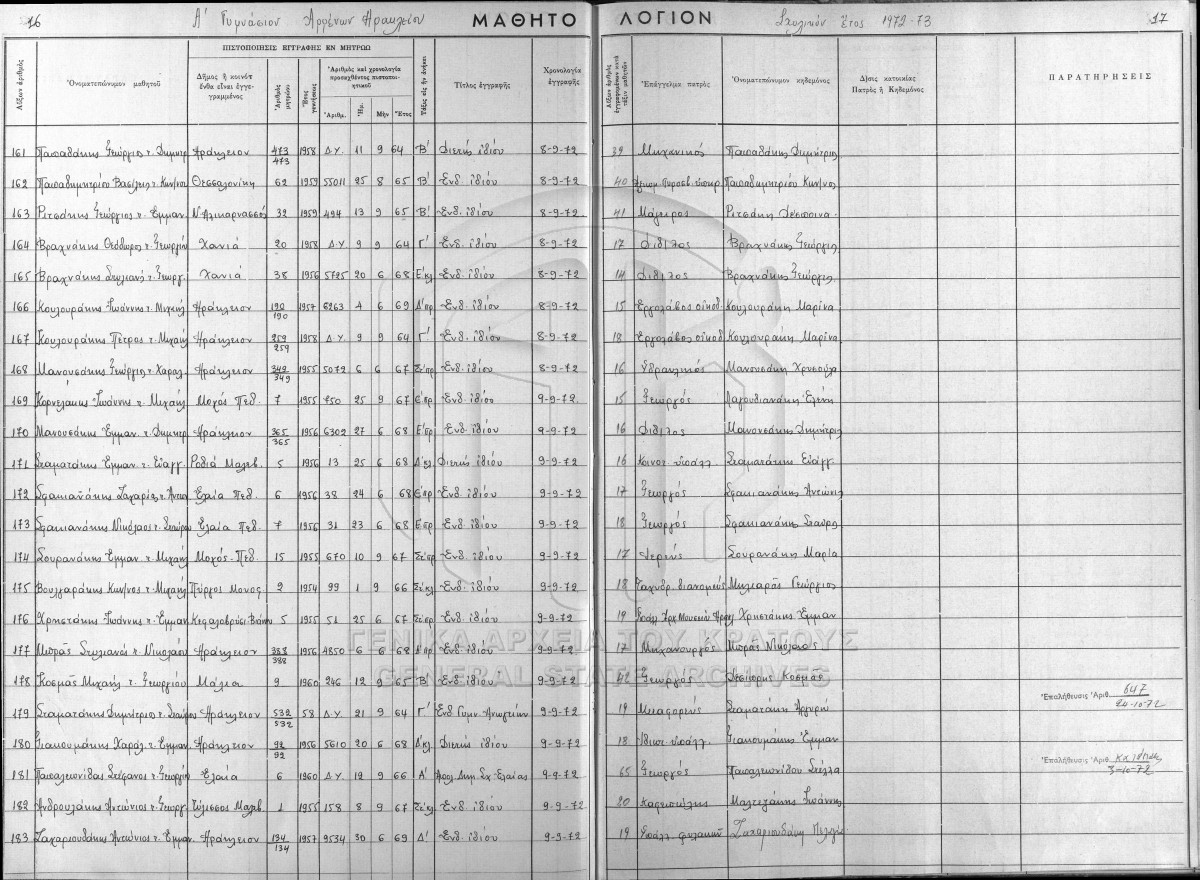 16 Α' Γυμνάσιον Αρρένων Ηρακλείου ΜΑΘΗΤΟ ΛΟΓΙΟΝ Σχολικόν Έτος 1972-73 17
ΠΙΣΤΟΠΟΙΗΣΙΣ ΕΓΓΡΑΦΗΣ ΕΝ ΜΗΤΡΩΩ
Αὔξων ἀριθμός Ὀνοματεπώνυμον μαθητοῦ Δῆμος ἢ κοινότ ἔνθα εἶναι ἐγγεγραμμένος Ἀριθμὸς μητρώου Ἔτος γεννήσεως Ἀριθμὸς καὶ χρονολογία προσαχθέντος πιστοποιητικοῦ Ἀριθμ. Ἡμ. Μὴν Ἔτος Τάξις εἰς ἣν ἀνήκει Τίτλος ἐγγραφῆς Χρονολογία ἐγγραφῆς Ἐπάγγελμα πατρὸς Ὀνοματεπώνυμον κηδεμόνος Δ)σις κατοικίας Πατρὸς ἢ Κηδεμόνος ΠΑΡΑΤΗΡΗΣΕΙΣ
161 Παπαδάκης Γεώργιος τ. Δημητρ Ηράκλειον 473 473 1958 Δ.Υ. 11 9 64 Β' Διετής ιδίου 8-9-72 39 Μηχανικός Παπαδάκης Δημήτριος
162 Παπαδημητρίου Βασίλειος τ. Κων/νος Θεσσαλονίκη 62 1959 55011 25 8 65 Β' Ενδ. ιδίου 8-9-72 40 Παπαδημητρίου Κων/νος
163 Ριτσάκης Γεώργιος τ. Εμμαν. Ν. Αλικαρνασσός 32 1959 494 13 9 65 Β' Ενδ. ιδίου 8-9-72 41 Μάγειρος Ριτσάκη Δέσποινα
164 Βραχνάκης Θεόδωρος τ. Γεωργίου Χανιά 20 1958 Δ.Υ 9 9 64 Γ' Ενδ. ιδίου 8-9-72 17 Βραχνάκης Γεώργιος
165 Βραχνάκης Στυλιανός τ. Γεωργ. Χανιά 38 1956 5725 20 6 68 Ε'κλ Ενδ. ιδίου 8-9-72 14 Βραχνάκης Γεώργιος
166 Κουλουράκης Ιωάννης τ. Μιχαήλ Ηράκλειον 190 190 1957 6263 4 6 69 Δ'πρ Ενδ. ιδίου 8-9-72 15 Εργολάβος οικοδ. Κουλουράκη Μαρίνα
167 Κουλουράκης Πέτρος τ. Μιχαήλ Ηράκλειον 259 259 1958 Δ.Υ. 9 9 64 Γ' Ενδ. ιδίου 8-9-72 18 Εργολάβος οικοδ. Κουλουράκη Μαρίνα
168 Μανουσάκης Γεώργιος τ. Χαραλ. Ηράκλειον 349 349 1955 5072 6 6 67 Στ'πρ Ενδ. ιδίου 8-9-72 16 Υδραυλικός Μανουσάκη Χρυσούλα
169 Κορνελάκης Ιωάννης τ. Μιχαήλ Μοχός Πεδ. 7 1955 750 25 9 67 Ε'πρ Ενδ. ιδίου 9-9-72 15 Γεωργός Λαγουδιανάκη Ελένη
170 Μανουσάκης Εμμαν. τ. Δημητρ Ηράκλειον 365 365 1956 6302 27 6 68 Ε'πρ Ενδ. ιδίου 9-9-72 16 Μανουσάκης Δημήτριος
171 Σταματάκης Εμμαν. τ. Ευαγγ. Ροδιά Μαλεβ. 5 1956 13 25 6 68 Δ'κλ Διετής ιδίου 9-9-72 16 Κοινοτ. υπάλλ. Σταματάκης Ευάγγ.
172 Σφακιανάκης Ζαχαρίας τ. Αντων Ελαία Πεδ. 6 1956 38 24 6 68 Ε'πρ Ενδ. ιδίου 9-9-72 17 Γεωργός Σφακιανάκης Αντώνιος
173 Σφακιανάκης Νικόλαος τ. Σταύρου Ελαία Πεδ. 7 1956 31 23 6 68 Ε'πρ Ενδ. ιδίου 9-9-72 18 Γεωργός Σφακιανάκης Σταύρος
174 Σουρανάκης Εμμαν. τ. Μιχαήλ Μοχός Πεδ. 15 1955 670 10 9 67 Στ'πρ Ενδ. ιδίου 9-9-72 17 Ιερεύς Σουρανάκη Μαρία
175 Βουλγαράκης Κων/νος τ. Μιχαήλ Πύργος Μονοφ. 2 1954 99 1 9 66 Στ'κλ Ενδ. ιδίου 9-9-72 18 Ταχυδρ. διανομεύς Γεώργιος
176 Χρηστάκης Ιωάννης τ. Εμμαν Κεφαλοβρύσι Βιάννου 5 1955 51 25 6 67 Στ'πρ Ενδ. ιδίου 9-9-72 19 Χρηστάκης Εμμαν
177 Μπράς Στυλιανός τ. Νικολάου Ηράκλειον 388 388 1956 4850 6 6 68 Δ'πρ Ενδ. ιδίου 9-9-72 17 Μηχανουργός Μπράς Νικόλαος
178 Κοσμάς Μιχαήλ τ. Γεωργίου Μάλια 9 1960 246 12 9 65 Β' Ενδ. ιδίου 9-9-72 42 Γεωργός Κοσμάς Ἐπαλήθευσις Ἀριθ. 647 24-10-72
179 Σταματάκης Δημήτριος τ. Σταύρου Ηράκλειον 532 532 58 Δ.Υ. 21 9 64 Γ' Ενδ Γυμν. Ανωγείων 9-9-72 19 Μεταφορεύς Σταματάκη Αργυρώ
180 Γιακουμάκης Χαραλ. τ. Εμμαν. Ηράκλειον 92 92 1956 5610 20 6 68 Δ'κλ Διετής ιδίου 9-9-72 18 Ιδιωτ. υπάλλ. Γιακουμάκης Εμμαν
181 Παπαλεωνίδας Στέφανος τ. Γεωργίου Ελαία 6 1960 Δ.Υ 12 9 66 Α' Απολ. Δημ. Σχ. Ελαίας 9-9-72 65 Γεωργός Παπαλεωνίδου Στέλλα Ἐπαλήθευσις Ἀριθ. 3-10-72
182 Ανδρουλάκης Αντώνιος τ. Γεωργ. Τύλισσος Μαλεβ. 1 1955 158 8 9 67 Στ'κλ Ενδ. ιδίου 9-9-72 20 Καφεπώλης Μαλτεζάκης Ιωάννης
183 Ζαχαριουδάκης Αντώνιος τ. Εμμαν. Ηράκλειον 134 134 1957 9534 30 6 69 Δ' Ενδ. ιδίου 9-9-72 19 Υπάλλ. φυλακών Ζαχαριουδάκη Πελαγία
ΓΕΝΙΚΑ ΑΡΧΕΙΑ ΤΟΥ ΚΡΑΤΟΥΣ
GENERAL STATE ARCHIVES